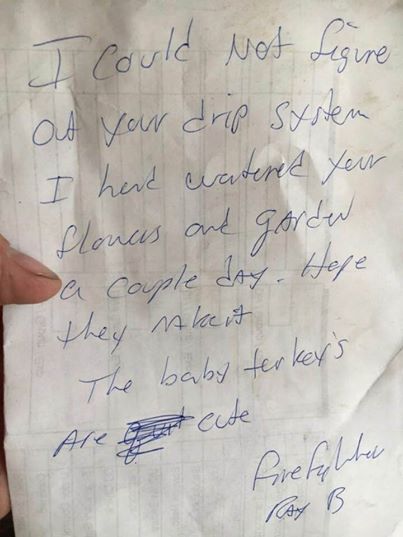 I Could Not figure
out your drip system
I hand watered your
flowers and garden
a couple day. Hope
they make it
The baby turkey's
Are cute
Firefighter
Ray B